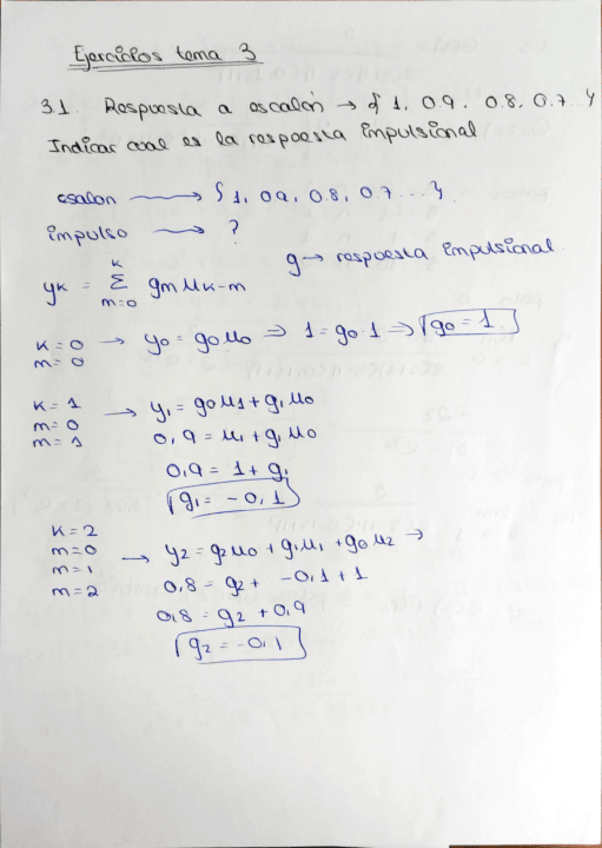 Ejercicios tema 3
3.1. Respuesta a escalón → { 1, 0.9, 0.8, 0.7...}
Indicar cual es la respuesta impulsional
escalon → { 1, 0.9, 0.8, 0.7...}
impulso → ?
g → respuesta impulsional
yk = Σ (m=0, k) gm μk-m
k = 0
m = 0
→ y0 = g0μ0 ⇒ 1 = g0·1 ⇒ g0 = 1
k = 1
m = 0
m = 1
→ y1 = g0μ1 + g1μ0
0,9 = μ1 + g1μ0
0,9 = 1 + g1
g1 = -0,1
k = 2
m = 0
m = 1
m = 2
→ y2 = g2μ0 + g1μ1 + g0μ2 →
0,8 = g2 + -0,1 + 1
0,8 = g2 + 0,9
g2 = -0,1